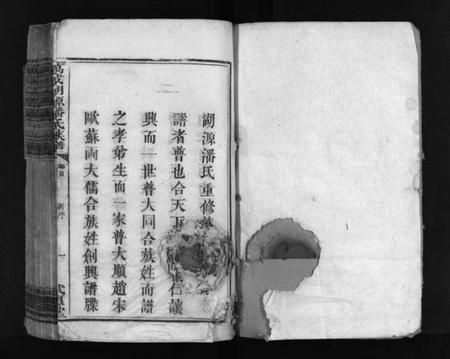 湖源潘氏重修
譜者普也合天下仁讓
興而一世普大同合族姓而譜
之孝弟生而一家普大順趙宋
歐蘇兩大儒合族姓創興譜牒
萬載湖源潘氏族譜